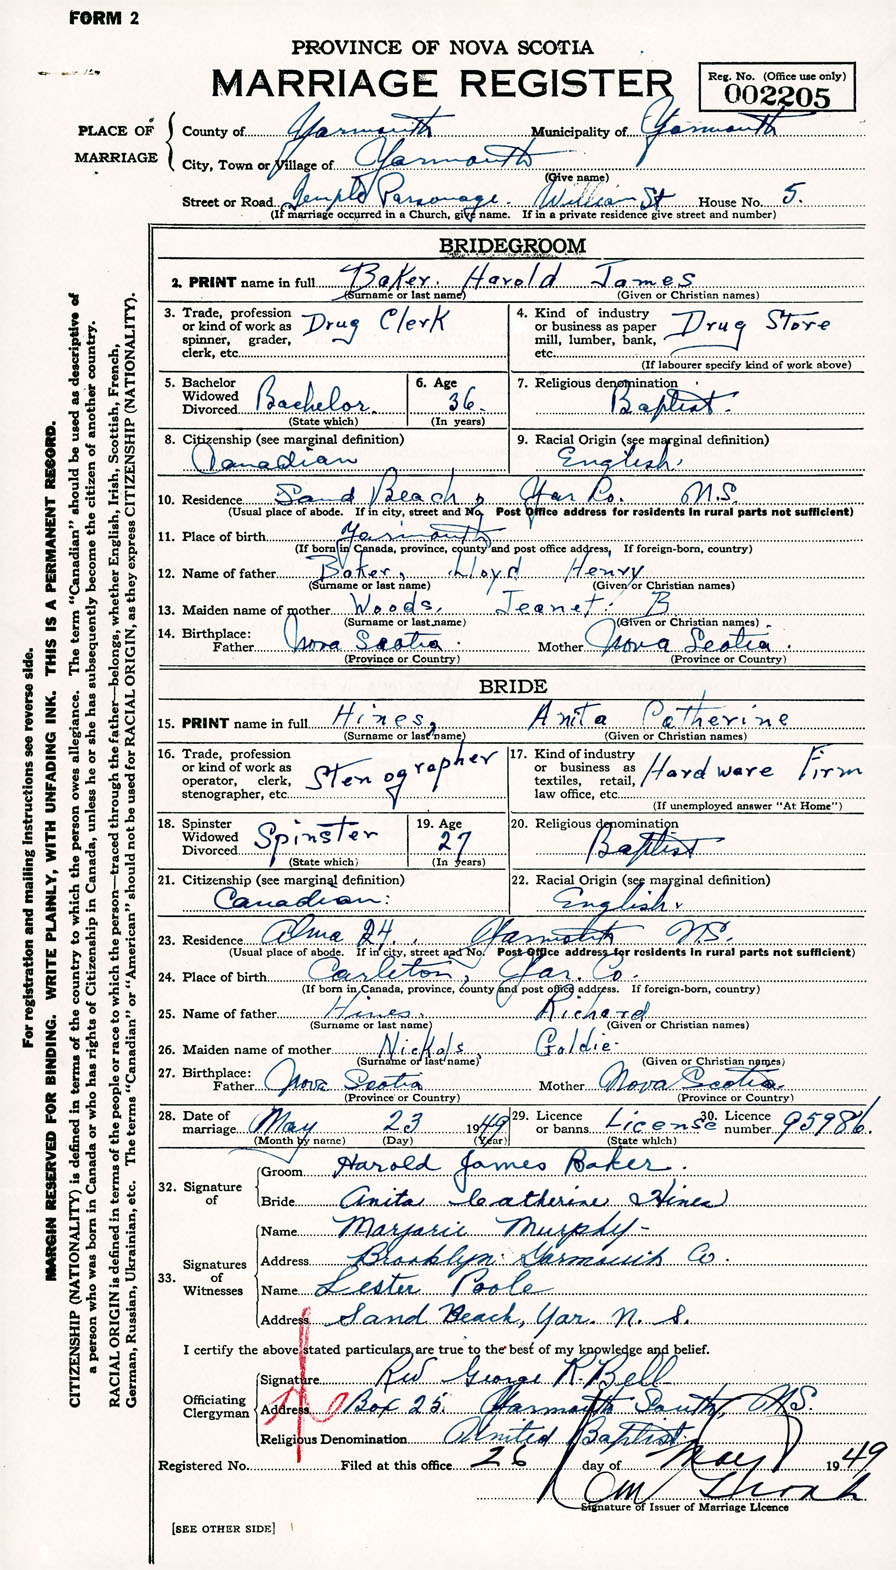 FORM 2
PROVINCE OF NOVA SCOTIA
MARRIAGE REGISTER
Reg. No. (Office use only)
002205
PLACE OF MARRIAGE
County of Yarmouth Municipality of Yarmouth
City, Town or Village of Yarmouth
(Give name)
Street or Road Temple Parsonage. William St House No. 5.
(If marriage occurred in a Church, give name. If in a private residence give street and number)
BRIDEGROOM
2. PRINT name in full Baker. Harold James
(Surname or last name) (Given or Christian names)
3. Trade, profession or kind of work as spinner, grader, clerk, etc. Drug Clerk
4. Kind of industry or business as paper mill, lumber, bank, etc. Drug Store
(If labourer specify kind of work above)
5. Bachelor Widowed Divorced Bachelor.
(State which)
6. Age 36.
(In years)
7. Religious denomination Baptist.
8. Citizenship (see marginal definition) Canadian
9. Racial Origin (see marginal definition) English.
10. Residence Sand Beach, Yar Co. N.S.
(Usual place of abode. If in city, street and No. Post Office address for residents in rural parts not sufficient)
11. Place of birth Yarmouth
(If born in Canada, province, county and post office address, If foreign-born, country)
12. Name of father Baker, Lloyd Henry
(Surname or last name) (Given or Christian names)
13. Maiden name of mother Woods, Jeanet. B
(Surname or last name) (Given or Christian names)
14. Birthplace: Father Nova Scotia. Mother Nova Scotia.
(Province or Country) (Province or Country)
BRIDE
15. PRINT name in full Hines, Anita Catherine
(Surname or last name) (Given or Christian names)
16. Trade, profession or kind of work as operator, clerk, stenographer, etc. Stenographer
17. Kind of industry or business as textiles, retail, law office, etc. Hardware Firm
(If unemployed answer "At Home")
18. Spinster Widowed Divorced Spinster
(State which)
19. Age 27
(In years)
20. Religious denomination Baptist
21. Citizenship (see marginal definition) Canadian:
22. Racial Origin (see marginal definition) English.
23. Residence Alma 24. Yarmouth N.S.
(Usual place of abode. If in city, street and No. Post Office address for residents in rural parts not sufficient)
24. Place of birth Carleton, Yar. Co.
(If born in Canada, province, county and post office address. If foreign-born, country)
25. Name of father Hines. Richard
(Surname or last name) (Given or Christian names)
26. Maiden name of mother Nickols, Goldie
(Surname or last name) (Given or Christian names)
27. Birthplace: Father Nova Scotia Mother Nova Scotia.
(Province or Country) (Province or Country)
28. Date of marriage May 23 1949
(Month by name) (Day) (Year)
29. Licence or banns License
(State which)
30. Licence number 95986.
32. Signature of
Groom Harold James Baker.
Bride Anita Catherine Hines
33. Signatures of Witnesses
Name Marjorie Murphy-
Address Brooklyn Yarmouth Co.
Name Lester Poole
Address Sand Beach, Yar. N. S.
I certify the above stated particulars are true to the best of my knowledge and belief.
Officiating Clergyman
Signature Rev George R. Bell
Address Box 25. Yarmouth South, N.S.
Religious Denomination United Baptist.
Registered No. Filed at this office 26 day of May 1949
Signature of Issuer of Marriage Licence
[SEE OTHER SIDE]
For registration and mailing instructions see reverse side.
MARGIN RESERVED FOR BINDING. WRITE PLAINLY, WITH UNFADING INK. THIS IS A PERMANENT RECORD.
CITIZENSHIP (NATIONALITY) is defined in terms of the country to which the person owes allegiance. The term "Canadian" should be used as descriptive of
a person who was born in Canada or who has rights of Citizenship in Canada, unless he or she has subsequently become the citizen of another country.
RACIAL ORIGIN is defined in terms of the people or race to which the person—traced through the father—belongs, whether English, Irish, Scottish, French,
German, Russian, Ukrainian, etc. The terms "Canadian" or "American" should not be used for RACIAL ORIGIN, as they express CITIZENSHIP (NATIONALITY).